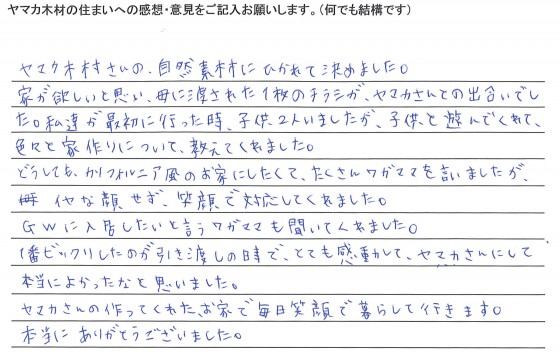 ヤマカ木材の住まいへの感想・意見をご記入お願いします。(何でも結構です)
ヤマカ木村さんの、自然素材にひかれて決めました。
家が欲しいと思い、母に渡された1枚のチラシが、ヤマカさんとの出合いでし
た。私達が最初に行った時、子供2人いましたが、子供と遊んでくれて、
色々と家作りについて、教えてくれました。
どうしても、カリフォルニア風のお家にしたくて、たくさんワガママを言いましたが、
イヤな顔せず、笑顔で対応してくれました。
GWに入居したいと言うワガママも聞いてくれました。
1番ビックリしたのが引き渡しの時で、とても感動して、ヤマカさんにして
本当によかったなと思いました。
ヤマカさんの作ってくれたお家で毎日笑顔で暮らして行きます。
本当にありがとうございました。